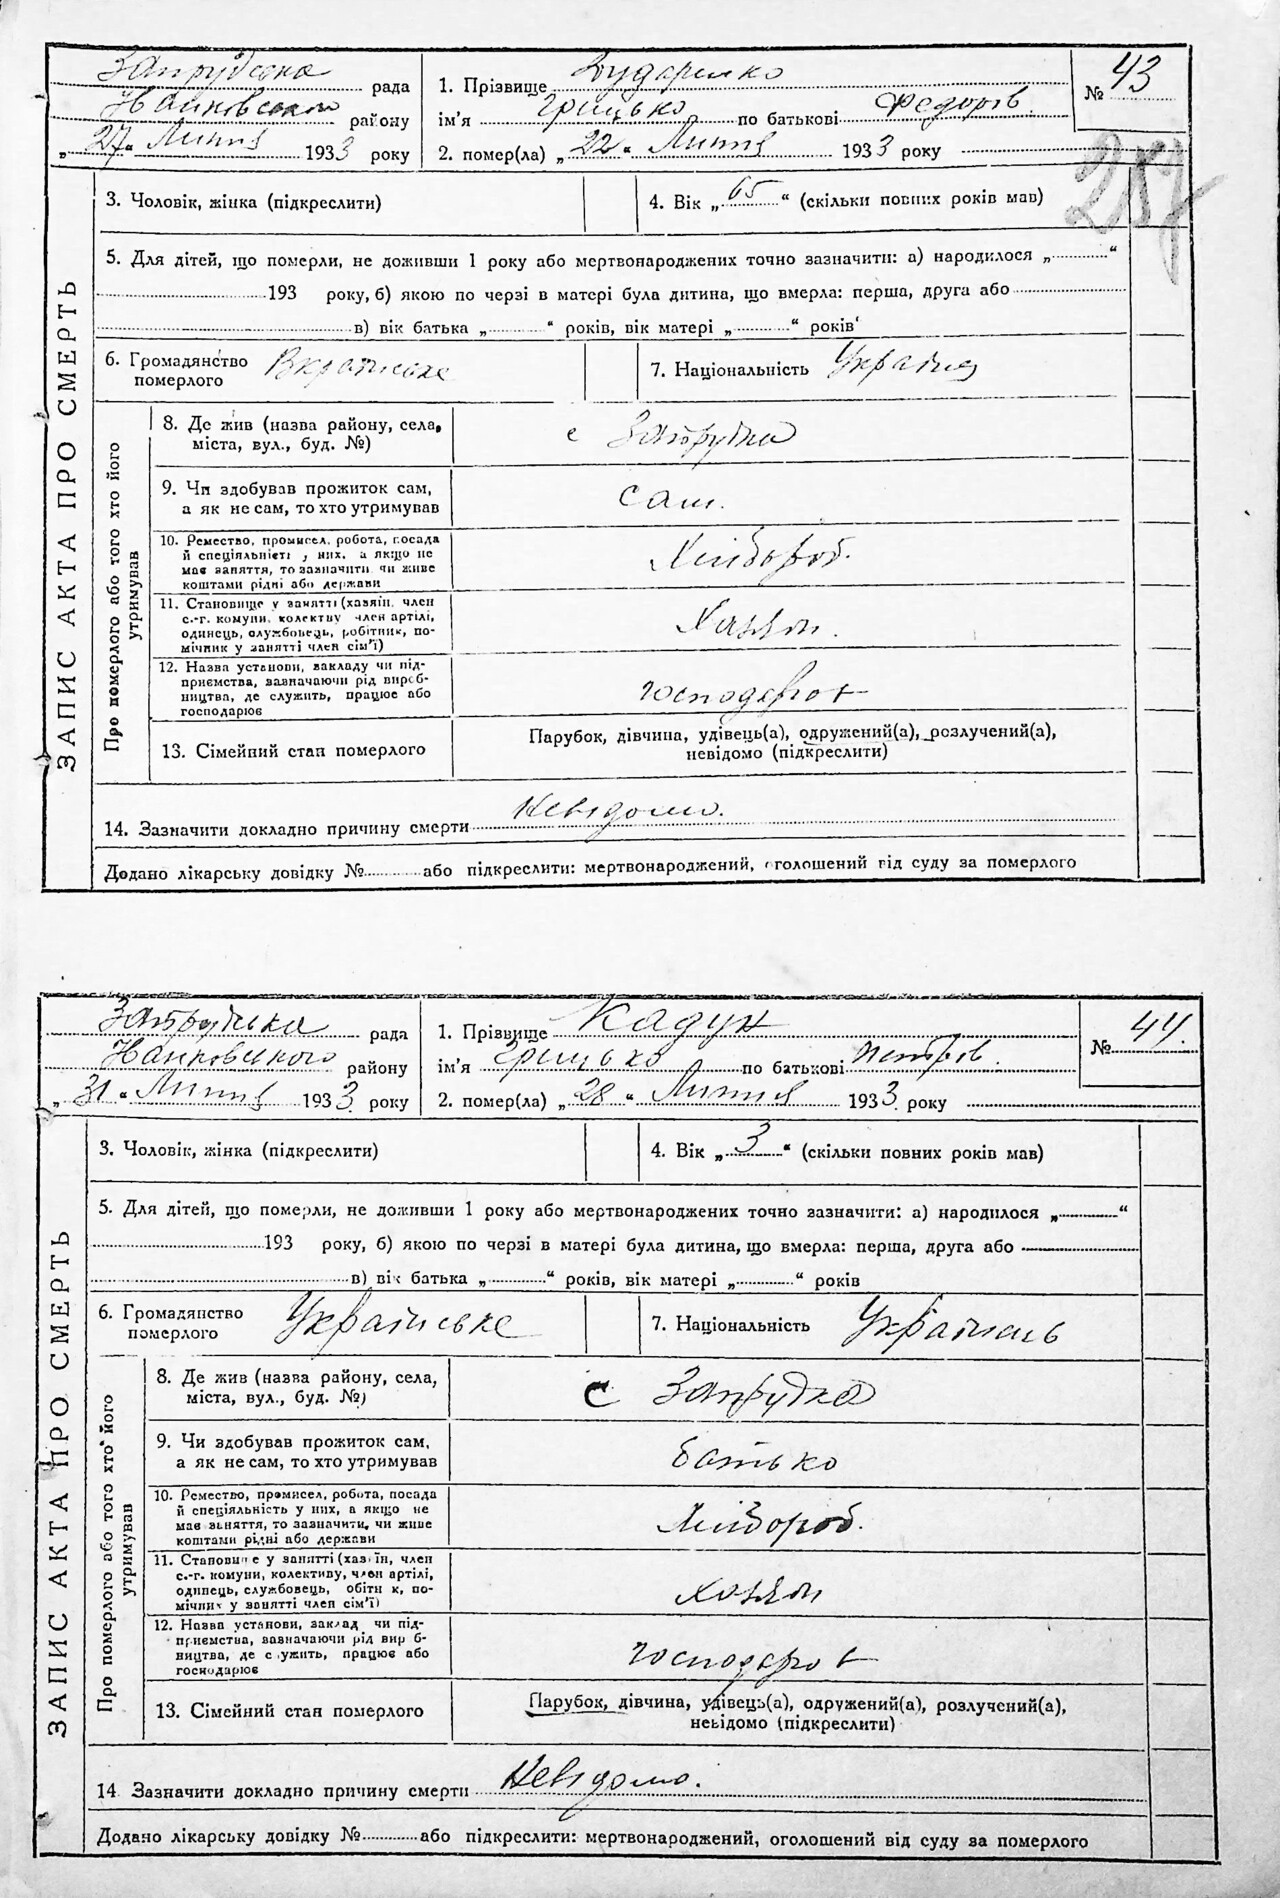 Запрудська рада
району
„27“ Липня 1933 року
1. Прізвище Дударенко
ім'я Грицько по батькові Федоров.
2. помер(ла) „22“ Липня 1933 року
№ 43
287
ЗАПИС АКТА ПРО СМЕРТЬ
3. Чоловік, жінка (підкреслити)
4. Вік „65“ (скільки повних років мав)
5. Для дітей, що померли, не доживши 1 року або мертвонароджених точно зазначити: а) народилося „ “
193 року, б) якою по черзі в матері була дитина, що вмерла: перша, друга або
в) вік батька „ “ років, вік матері „ “ років
6. Громадянство
померлого
Вкраїнське
7. Національність
Про померлого або того хто його
утримував
8. Де жив (назва району, села,
міста, вул., буд. №)
с Запрудка
9. Чи здобував прожиток сам,
а як не сам, то хто утримував
сам.
10. Ремество, промисел, робота, посада
й спеціяльність у них, а якщо не
має заняття, то зазначити чи живе
коштами рідні або держави
Хлібороб.
11. Становище у занятті (хазяїн, член
с.-г. комуни, колективу член артілі,
одинець, службовець, робітник, по-
мічник у занятті член сім'ї)
Хазяїн.
12. Назва установи, закладу чи під-
приємства, зазначаючи рід вироб-
ництва, де служить, працює або
господарює
13. Сімейний стан померлого
Парубок, дівчина, удівець(а), одружений(а), розлучений(а),
невідомо (підкреслити)
14. Зазначити докладно причину смерти Невідомо.
Додано лікарську довідку № або підкреслити: мертвонароджений, оголошений від суду за померлого
Запрудська рада
району
„31“ Липня 1933 року
1. Прізвище Кадун
ім'я Грицько по батькові Петров.
2. помер(ла) „28“ Липня 1933 року
№ 44.
ЗАПИС АКТА ПРО СМЕРТЬ
3. Чоловік, жінка (підкреслити)
4. Вік „3“ (скільки повних років мав)
5. Для дітей, що померли, не доживши 1 року або мертвонароджених точно зазначити: а) народилося „ “
193 року, б) якою по черзі в матері була дитина, що вмерла: перша, друга або
в) вік батька „ “ років, вік матері „ “ років
6. Громадянство
померлого
Українське
7. Національність Українець
Про померлого або того хто його
утримував
8. Де жив (назва району, села,
міста, вул., буд. №)
с Запрудка
9. Чи здобував прожиток сам,
а як не сам, то хто утримував
батько
10. Ремество, промисел, робота, посада
й спеціяльність у них, а якщо не
має заняття, то зазначити, чи живе
коштами рідні або держави
Хлібороб.
11. Становище у занятті (хазяїн, член
с.-г. комуни, колективу, член артілі,
одинець, службовець, робітник, по-
мічник у занятті член сім'ї)
Хазяїн
12. Назва установи, заклад чи під-
приємства, зазначаючи рід вироб-
ництва, де служить, працює або
господарює
13. Сімейний стан померлого
Парубок, дівчина, удівець(а), одружений(а), розлучений(а),
невідомо (підкреслити)
14 Зазначити докладно причину смерти Невідомо.
Додано лікарську довідку № або підкреслити: мертвонароджений, оголошений від суду за померлого